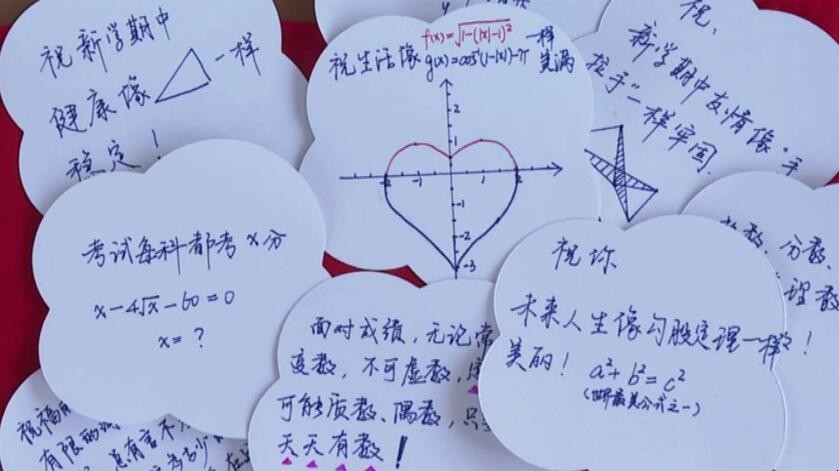 祝新学期中
健康像 一样
稳定！
f(x)=√1-(|x|-1)²
祝生活像 一样
g(x)=cos⁻¹(1-|x|)-π 美满
2
1
-2 -1 1 2
-1
-2
-3
祝：
新学期中友情像"手
拉手"一样牢固.
考试每科都考x分
x-4√x-60=0
x=？
面对成绩，无论常
变数，不可虚数，
可能质数、偶数，只
天天有数！
祝你
未来人生像勾股定理一样
美丽！
a²+b²=c²
(世界最美公式之一)
数、分数、
理数
祝福
有限的
总有言不